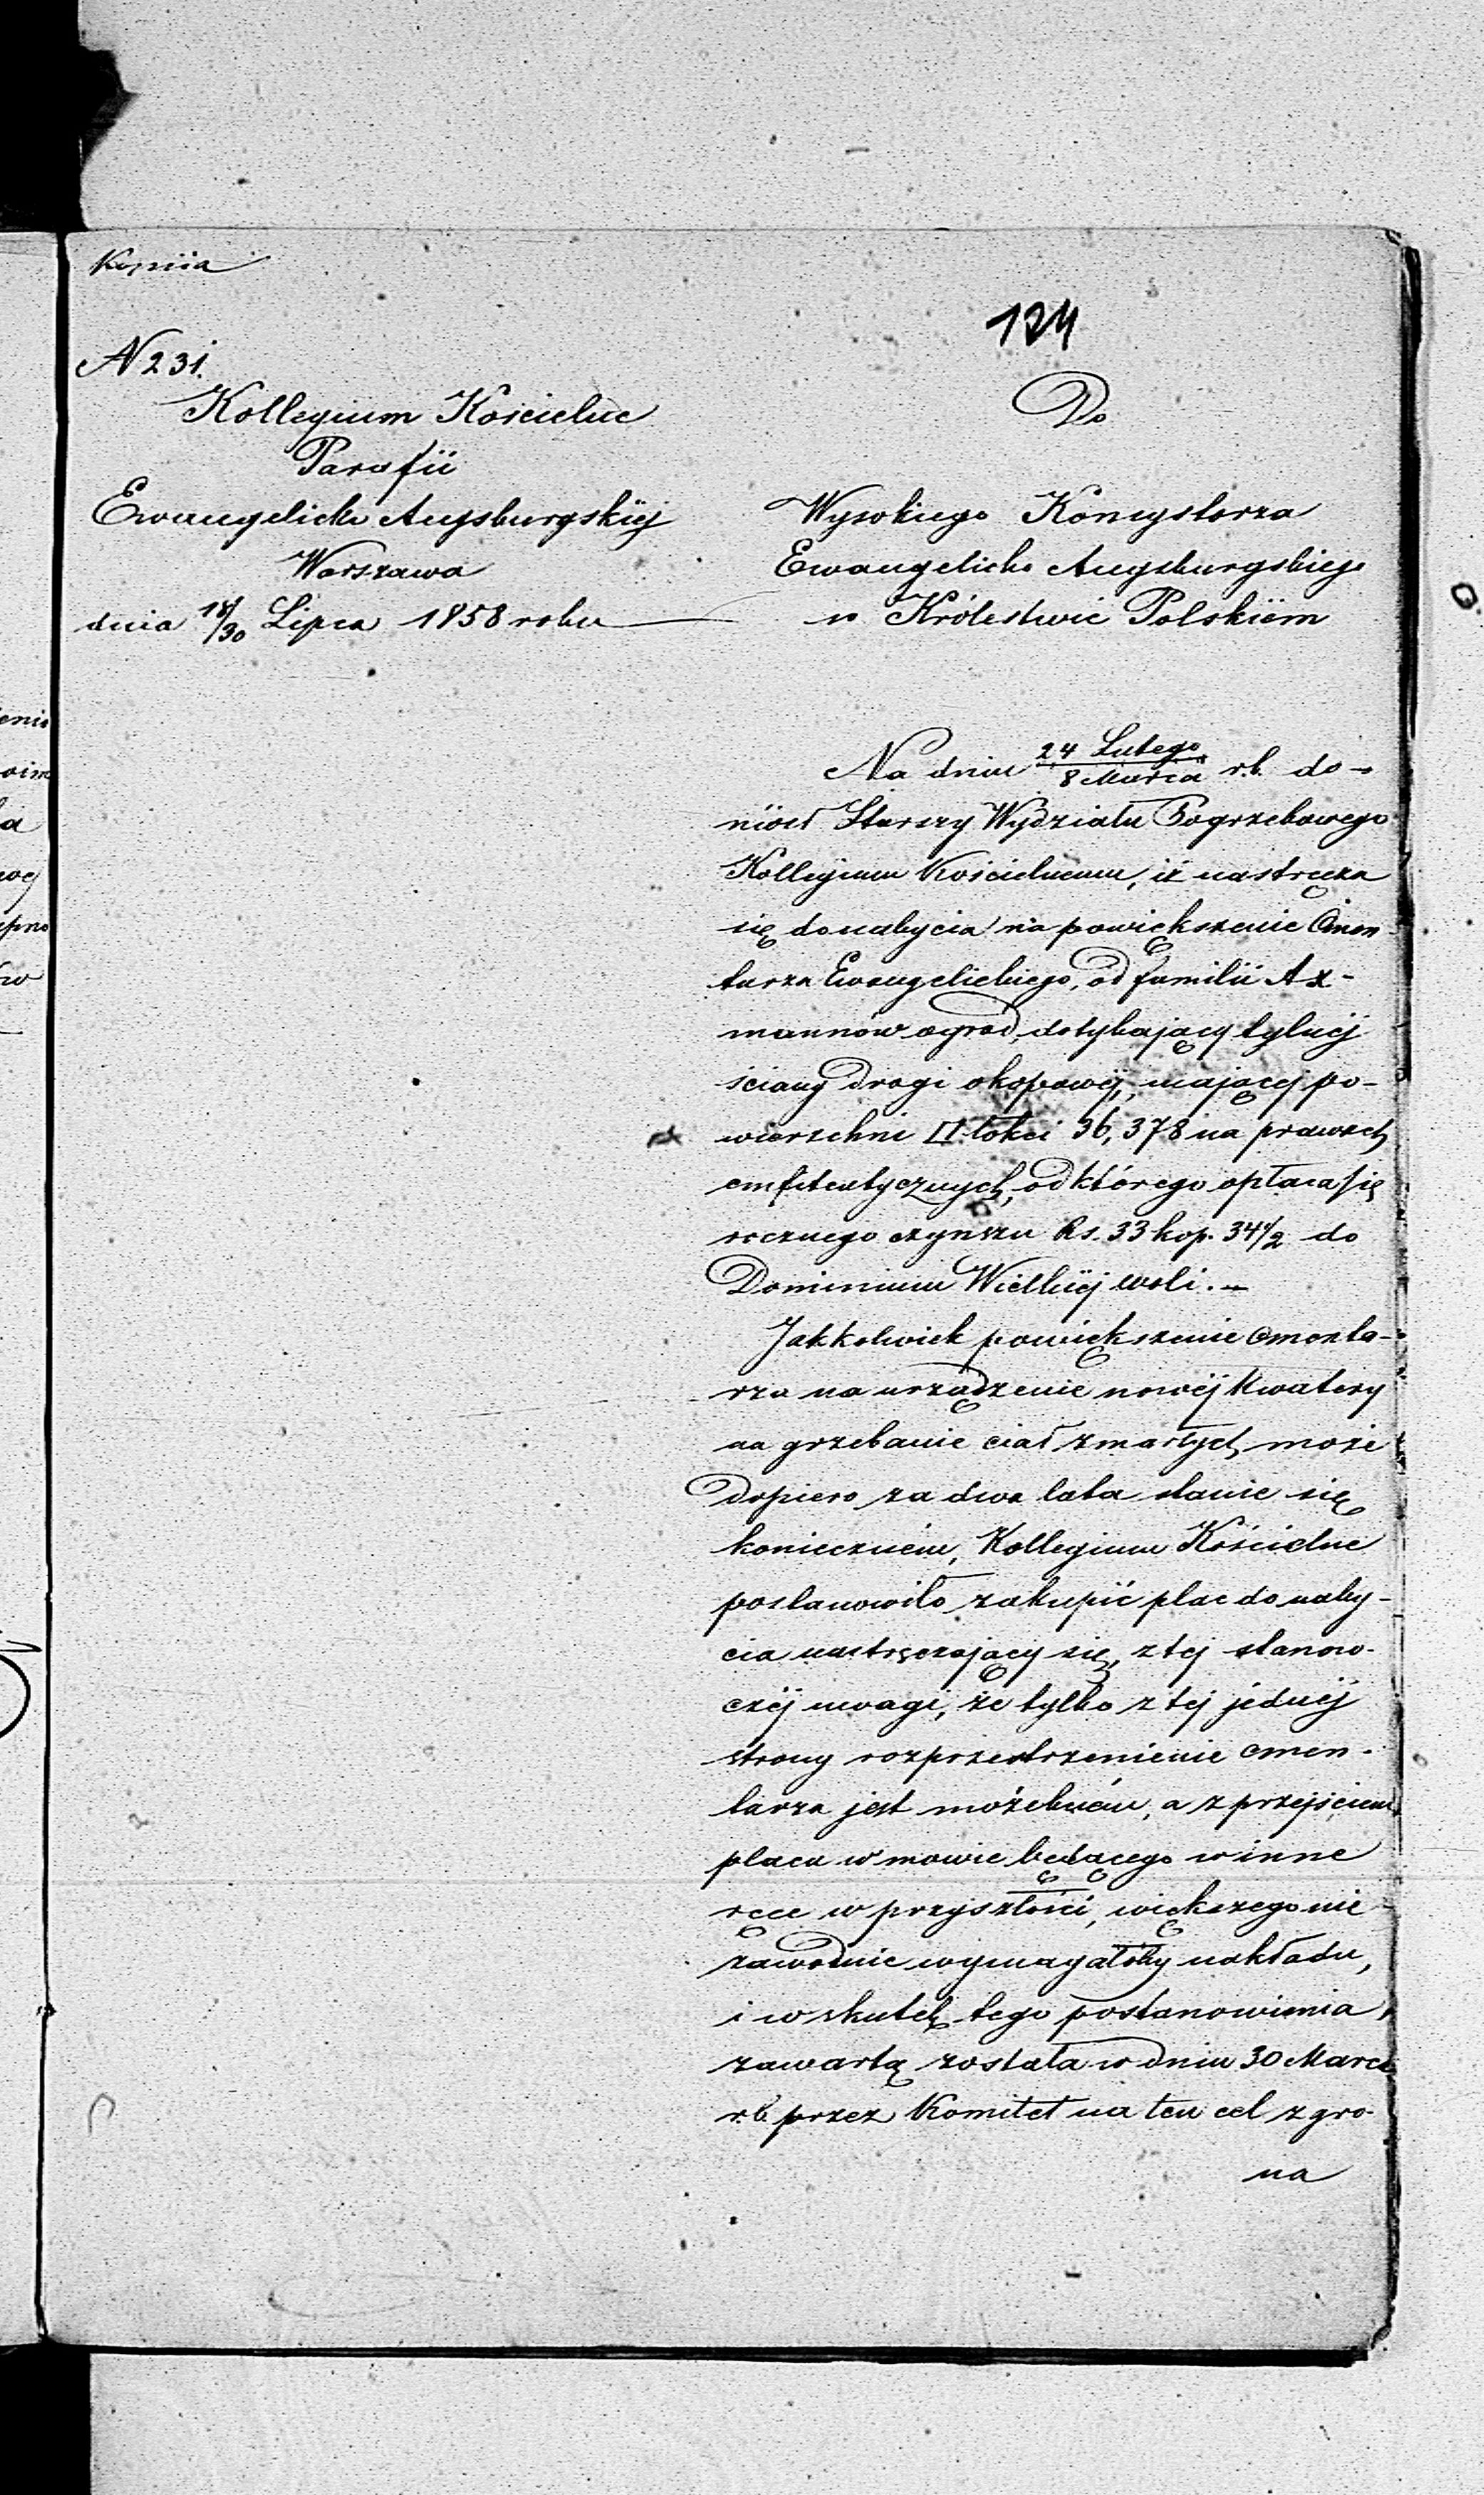 Kopiia
124
N 231.
Kollegium Kościelne
Parafii
Ewangelicko Augsburgskiéj
Warszawa
dnia 18/30 Lipca 1858 roku
Do
Wysokiego Konsystorza
Ewangelicko Augsburgskiego
w Królestwie Polskiém
Na dniu 24 Lutego/8 Marca r.b. do-
niósł Starszy Wydziału Pogrzebowego
Kollegium Kościelnemu, iż nastręcza
się do nabycia na powiększenie Cmen-
tarza Ewangelickiego, od familii Ax-
mannow ogrod, dotykający tylnéj
ściany drogi okopowéj, mającej po-
wierzchni □ łokci 36,378 na prawach
emfiteutycznych, od którego opłaca się
rocznego czynszu Rs. 33 kop. 34 1/2 do
Dominium Wielkiéj woli. —
Jakkolwiek powiększenie Cmenta-
rza na urządzenie nowéj Kwatery
na grzebanie ciał zmarłych może
dopiero za dwa lata stanie się
konieczném, Kollegium Kościelne
postanowiło zakupić plac do naby-
cia nastręczający się, z tej stanow-
czéj uwagi, że tylko z tej jednéj
strony rozprzestrzenienie cmen-
tarza jest możebném, a z przejściem
placu w mowie będącego w inne
ręce w przyszłości, większego nie-
zawodnie wymagałoby nakładu,
i w skutek tego postanowienia,
zawartą została w dniu 30 Marca
r.b. przez Komitet na ten cel z gro-
na